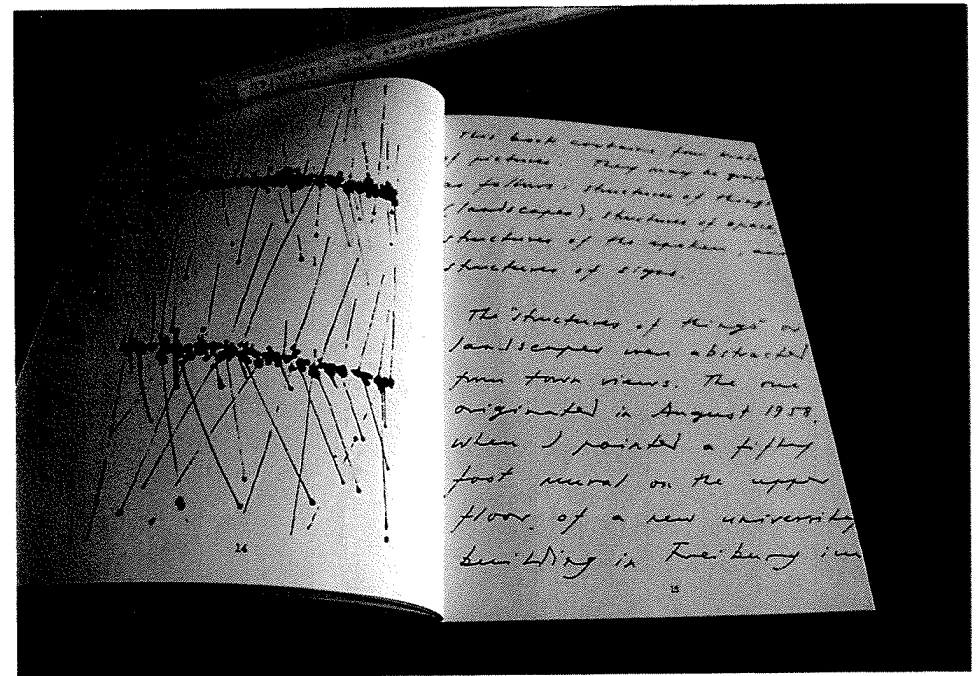 14
This book contains four kinds
of pictures. They may be
as follows: structures of things
(landscapes), structures of space,
structures of the spoken, and
structures of signs.
The "structures of things" or
landscapes were abstracted
from town views. The one
originated in August 1958,
when I painted a fifty
foot mural on the upper
floor of a new university
building in Freiburg im
15